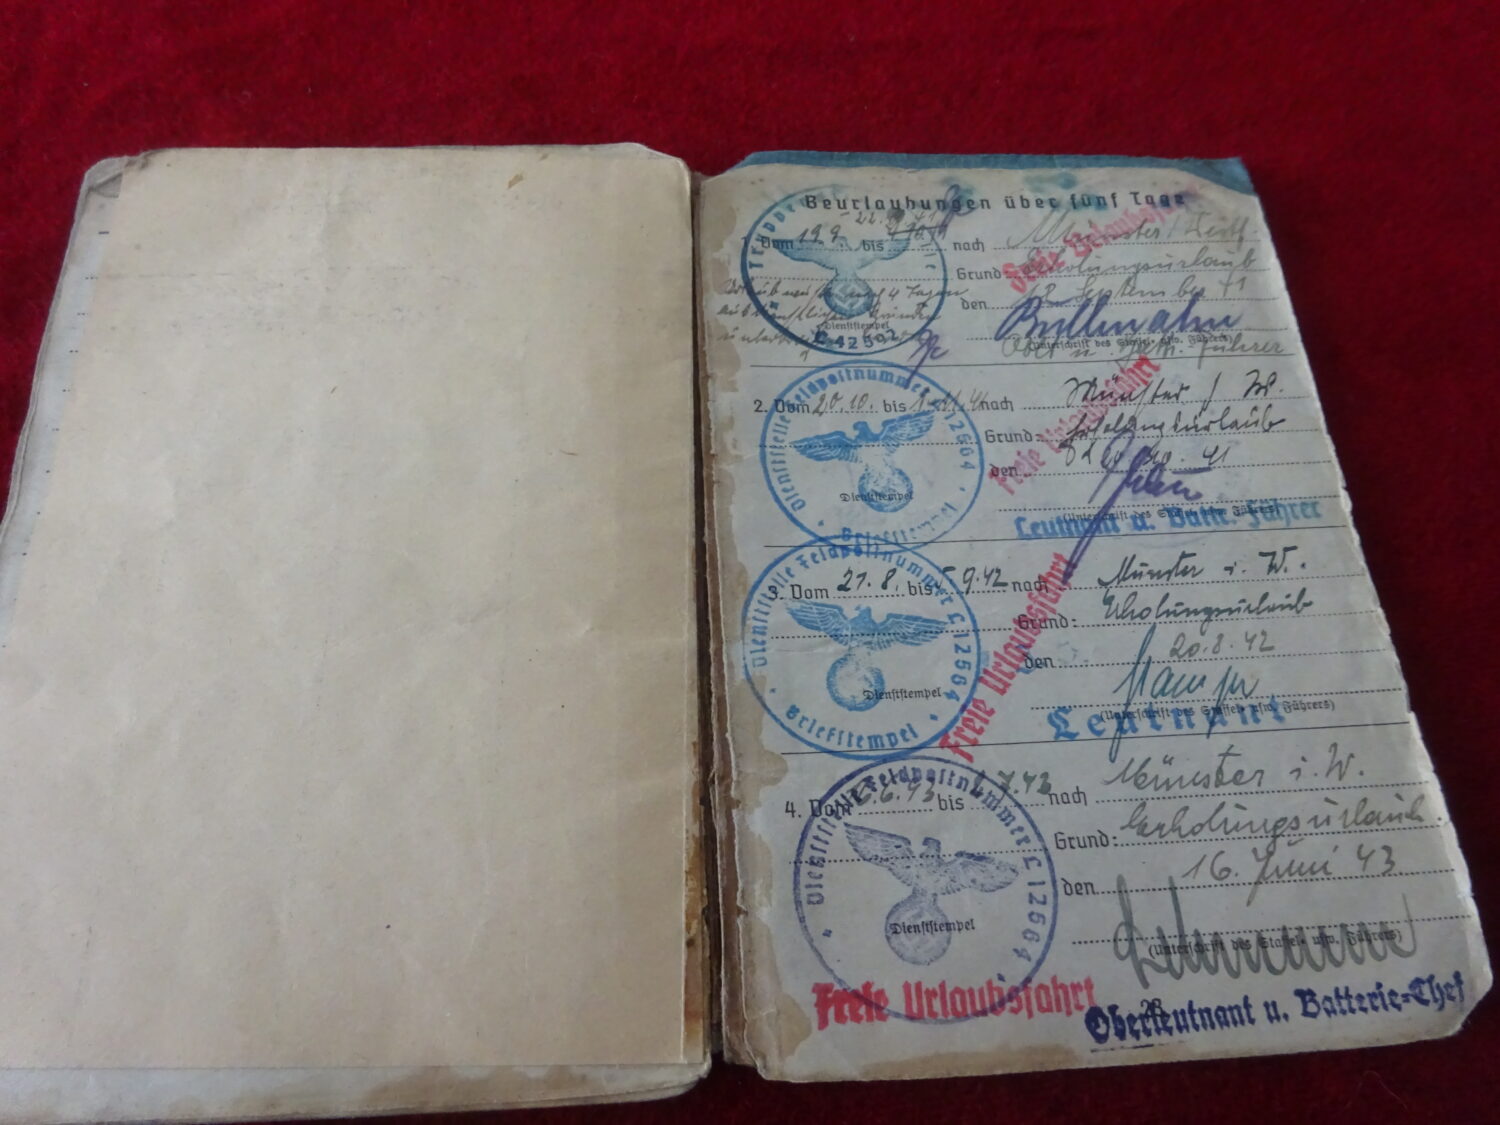 Beurlaubungen über fünf Tage
22.
1. Vom 19.9. bis nach Münster/Westf
Freie Urlaubsfahrt
Grund: Erholungsurlaub
den 18. September 41
Dienststempel
L 42592
(Unterschrift des Staffel- usw. Führers)
Führer
Dienststelle Feldpostnummer L 12564
Briefstempel
2. Vom 20.10. bis 1.11.41 nach Münster / W.
Grund: Erholungsurlaub
den 41
Freie Urlaubsfahrt
Dienststempel
(Unterschrift des Staffel- usw. Führers)
Leutnant u. Battr.-Führer
Dienststelle Feldpostnummer L 12564
Briefstempel
3. Vom 21.8. bis 5.9.42 nach Münster i. W.
Grund: Erholungsurlaub
den 20.8.42
Freie Urlaubsfahrt
Dienststempel
(Unterschrift des Staffel- usw. Führers)
Leutnant
Dienststelle Feldpostnummer L 12564
4. Vom bis 7.43 nach Münster i. W.
Grund: Erholungsurlaub
den 16. Juni 43
Dienststempel
(Unterschrift des Staffel- usw. Führers)
Freie Urlaubsfahrt
Oberleutnant u. Batterie-Chef